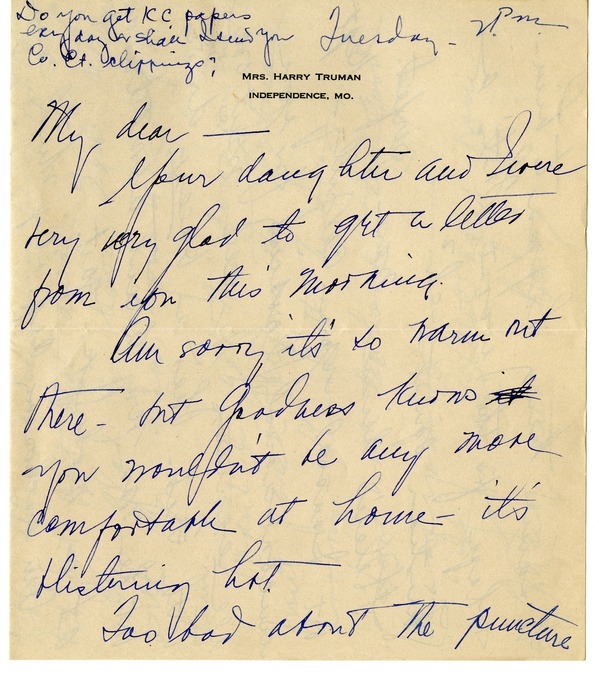 Do you get KC papers
every day or shall I send you
Co. Ct. clippings?
Tuesday - 2 P.m.
MRS. HARRY TRUMAN
INDEPENDENCE, MO.
My dear —
Your daughter and I were
very very glad to get a letter
from you this morning.
Am sorry it's so warm out
there - but goodness knows it
you wouldn't be any more
comfortable at home - it's
blistering hot.
Too bad about the puncture